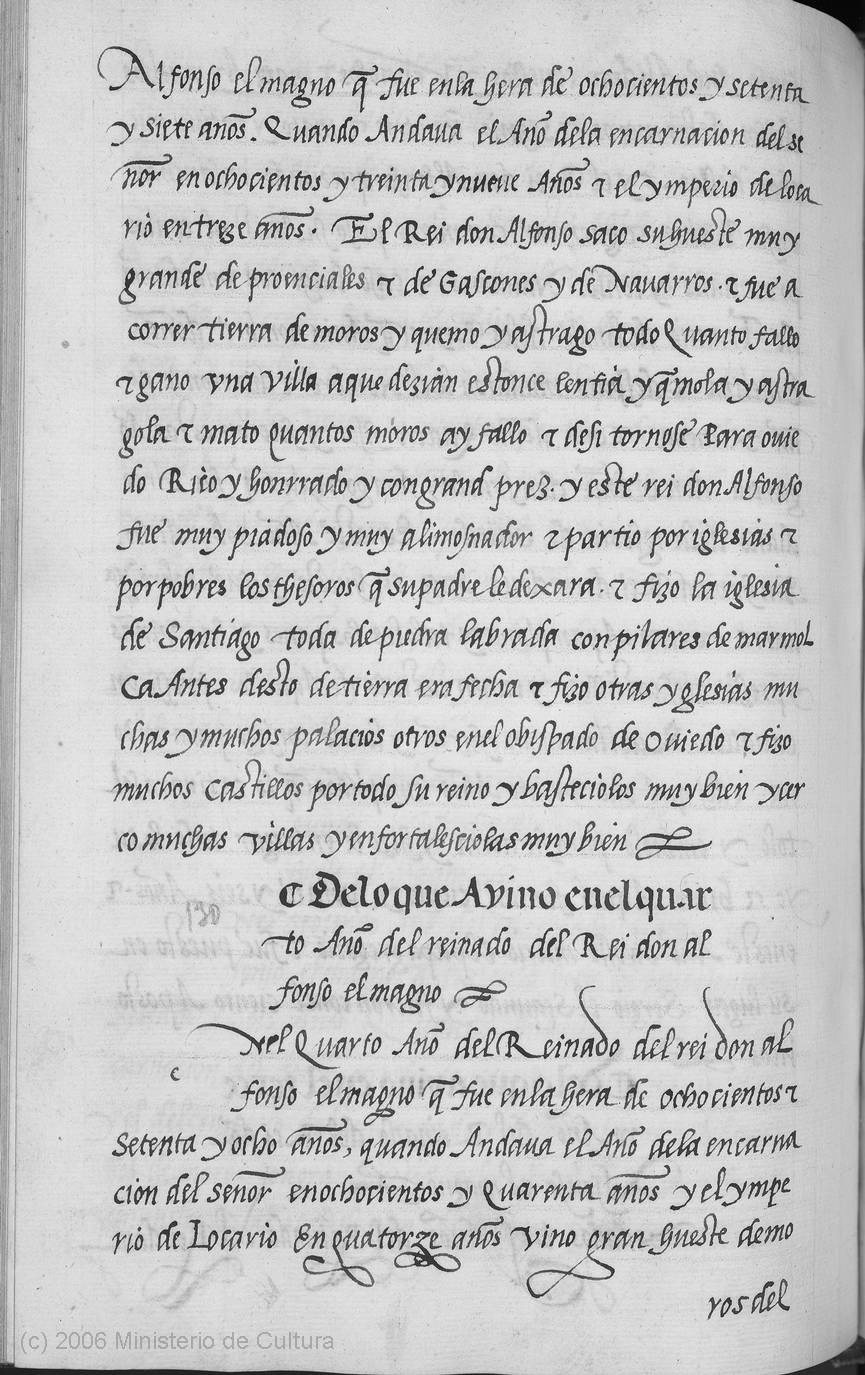 Alfonso el magno q̃ fue enla hera de ochocientos y setenta
y siete años. Quando Andava el Año dela encarnacion del se
ñor en ochocientos y treinta y nueve Años τ el ymperio de loca
rio en treze años. El Rei don Alfonso saco su hueste muy
grande de proenciales τ de Gascones y de Navarros. τ fue a
correr tierra de moros y quemo y astrago todo Quanto fallo
τ gano vna villa aque dezian estonce lentia y q̃mola y astra
gola τ mato quantos moros ay fallo τ desi tornose Para ovie
do Rico y honrrado y con grand prez. y este rei don Alfonso
fue muy piadoso y muy alimosnador τ partio por iglesias τ
por pobres los thesoros q̃ su padre le dexara. τ fizo la iglesia
de Santiago toda de piedra labrada con pilares de marmol
Ca Antes desto de tierra era fecha τ fizo otras yglesias mu
chas y muchos palacios otros enel obispado de Oviedo τ fizo
muchos Castillos por todo su reino y basteciolos muy bien y cer
co muchas villas y enfortalesciolas muy bien
¶ Delo que Avino enel quar
130
to Año del reinado del Rei don al
fonso el magno
Nel Quarto Año del Reinado del rei don al
e
fonso el magno q̃ fue enla hera de ochocientos τ
setenta y ocho años, quando Andava el Año dela encarna
cion del señor en ochocientos y Quarenta años y el ympe
rio de Locario En quatorze años vino gran hueste de mo
ros del
(c) 2006 Ministerio de Cultura